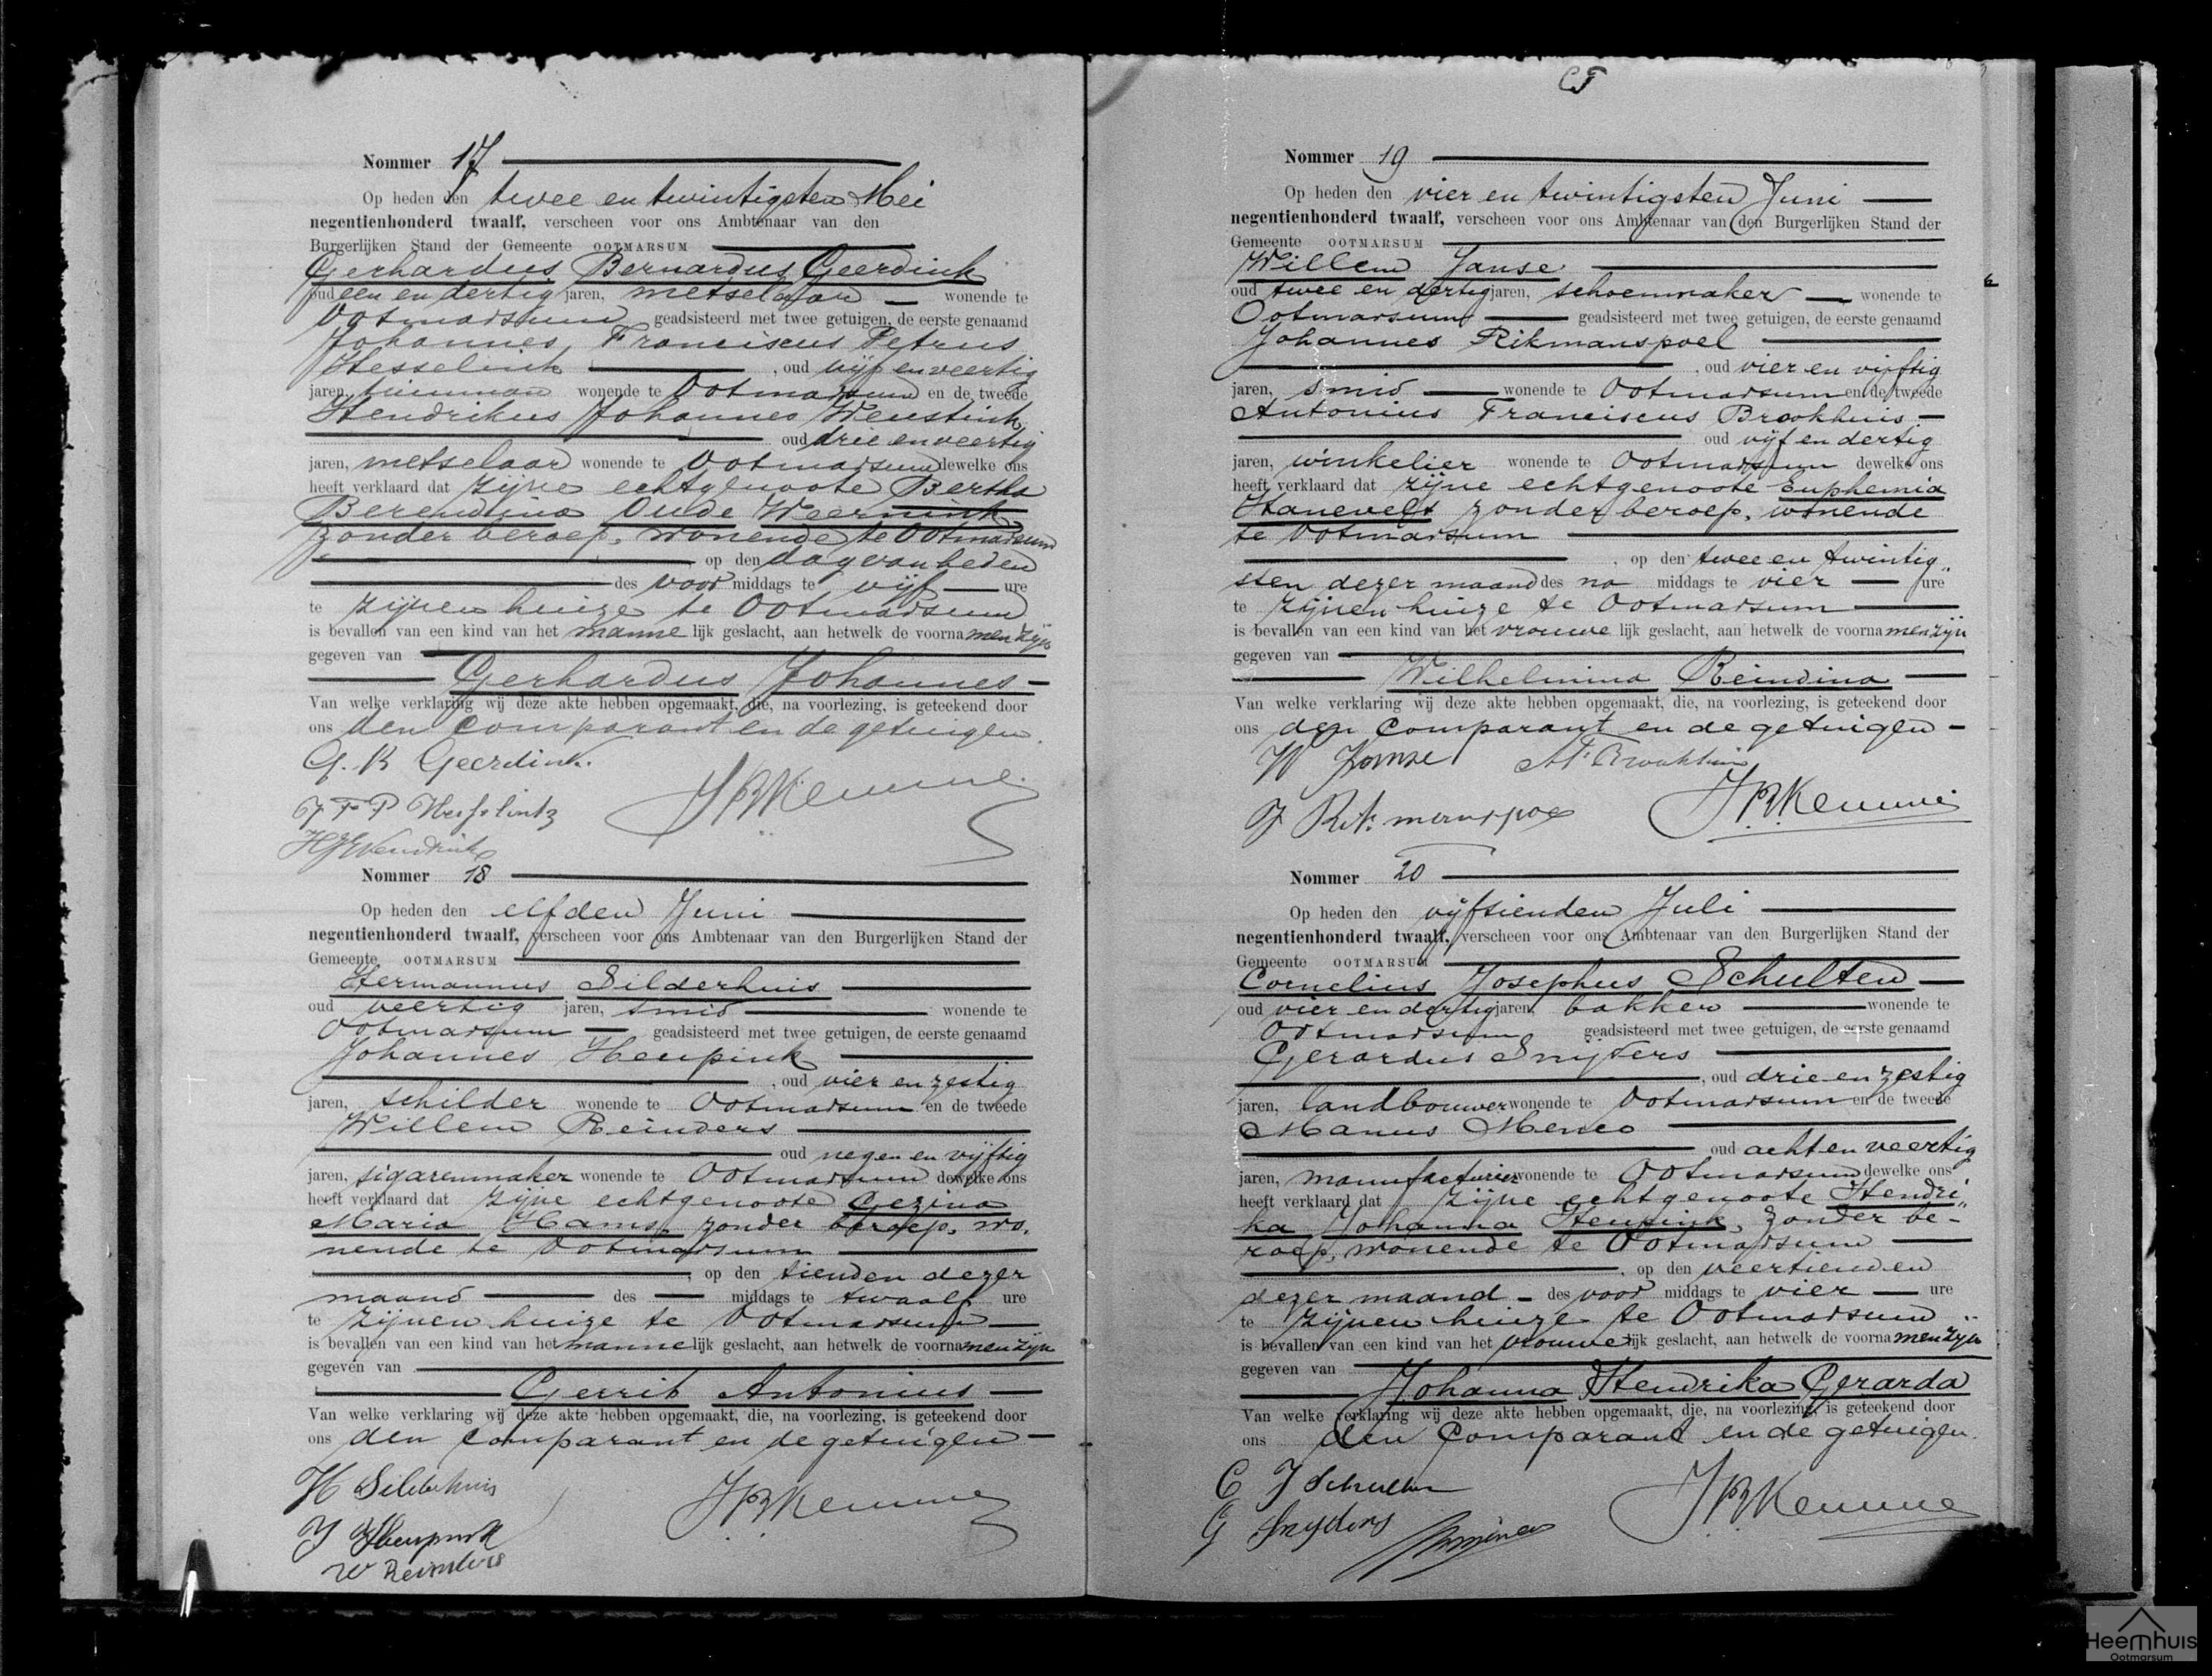 Nommer 17
Op heden den twee en twintigsten Mei
negentienhonderd twaalf, verscheen voor ons Ambtenaar van den
Burgerlijken Stand der Gemeente OOTMARSUM
Gerhardus Bernardus Geerdink
oud een en dertig jaren, metselaar wonende te
Ootmarsum geadsisteerd met twee getuigen, de eerste genaamd
Johannes Franciscus Petrus
Hesselink, oud vijf en veertig
jaren, wonende te Ootmarsum en de tweede
Hendrikus Johannes
oud drie en veertig
jaren, metselaar wonende te Ootmarsum dewelke ons
heeft verklaard dat zijne echtgenoote Bertha
Berendina Oude Weernink,
zonder beroep, wonende te Ootmarsum
op den dag van heden
des voor middags te vijf ure
te zijnen huize te Ootmarsum
is bevallen van een kind van het mannelijk geslacht, aan hetwelk de voornamen zijn
gegeven van
Gerhardus Johannes
Van welke verklaring wij deze akte hebben opgemaakt, die, na voorlezing, is geteekend door
ons den comparant en de getuigen.
G. B Geerdink.
J F P Hesselink
JBKemme
Nommer 18
Op heden den elfden Juni
negentienhonderd twaalf, verscheen voor ons Ambtenaar van den Burgerlijken Stand der
Gemeente OOTMARSUM
Hermannus Silderhuis
oud veertig jaren, smid wonende te
Ootmarsum geadsisteerd met twee getuigen, de eerste genaamd
Johannes Heupink
, oud vier en zestig
jaren, schilder wonende te Ootmarsum en de tweede
Willem Reinders
oud negen en vijftig
jaren, sigarenmaker wonende te Ootmarsum dewelke ons
heeft verklaard dat zijne echtgenoote Gezina
Maria Hams, zonder beroep, wo-
nende te Ootmarsum
, op den tienden dezer
maand des middags te twaalf ure
te zijnen huize te Ootmarsum
is bevallen van een kind van het mannelijk geslacht, aan hetwelk de voornamen zijn
gegeven van
Gerrit Antonius
Van welke verklaring wij deze akte hebben opgemaakt, die, na voorlezing, is geteekend door
ons den comparant en de getuigen
H Silderhuis
J Heupink
W Reinders
JBKemme
Nommer 19
Op heden den vier en twintigsten Juni
negentienhonderd twaalf, verscheen voor ons Ambtenaar van den Burgerlijken Stand der
Gemeente OOTMARSUM
Willem Janse
oud twee en dertig jaren, schoenmaker wonende te
Ootmarsum geadsisteerd met twee getuigen, de eerste genaamd
Johannes Rikmanspoel
, oud vier en vijftig
jaren, smid wonende te Ootmarsum en de tweede
Antonius Franciscus Brookhuis
oud vijf en dertig
jaren, winkelier wonende te Ootmarsum dewelke ons
heeft verklaard dat zijne echtgenoote Euphemia
Hanevelt zonder beroep, wonende
te Ootmarsum
, op den twee en twintig
sten dezer maand des na middags te vier ure
te zijnen huize te Ootmarsum
is bevallen van een kind van het vrouwelijk geslacht, aan hetwelk de voornamen zijn
gegeven van
Wilhelmina Reindina
Van welke verklaring wij deze akte hebben opgemaakt, die, na voorlezing, is geteekend door
ons den comparant en de getuigen
W Janse
AF Brookhuis
J Rikmanspoel
JBKemme
Nommer 20
Op heden den vijftienden Juli
negentienhonderd twaalf, verscheen voor ons Ambtenaar van den Burgerlijken Stand der
Gemeente OOTMARSUM
Cornelius Josephus Schulten
oud vier en dertig jaren, bakker wonende te
Ootmarsum geadsisteerd met twee getuigen, de eerste genaamd
Gerardus Snijders
, oud drie en zestig
jaren, landbouwer wonende te Ootmarsum en de tweede
Manus Menco
oud acht en veertig
jaren, manufacturier wonende te Ootmarsum dewelke ons
heeft verklaard dat zijne echtgenoote Hendri
ka Johanna Heupink, zonder be-
roep, wonende te Ootmarsum
, op den veertienden
dezer maand des voor middags te vier ure
te zijnen huize te Ootmarsum
is bevallen van een kind van het vrouwelijk geslacht, aan hetwelk de voornamen zijn
gegeven van
Johanna Hendrika Gerarda
Van welke verklaring wij deze akte hebben opgemaakt, die, na voorlezing, is geteekend door
ons den comparant en de getuigen.
C J Schulten
G Snijders
JBKemme
Heemhuis
Ootmarsum